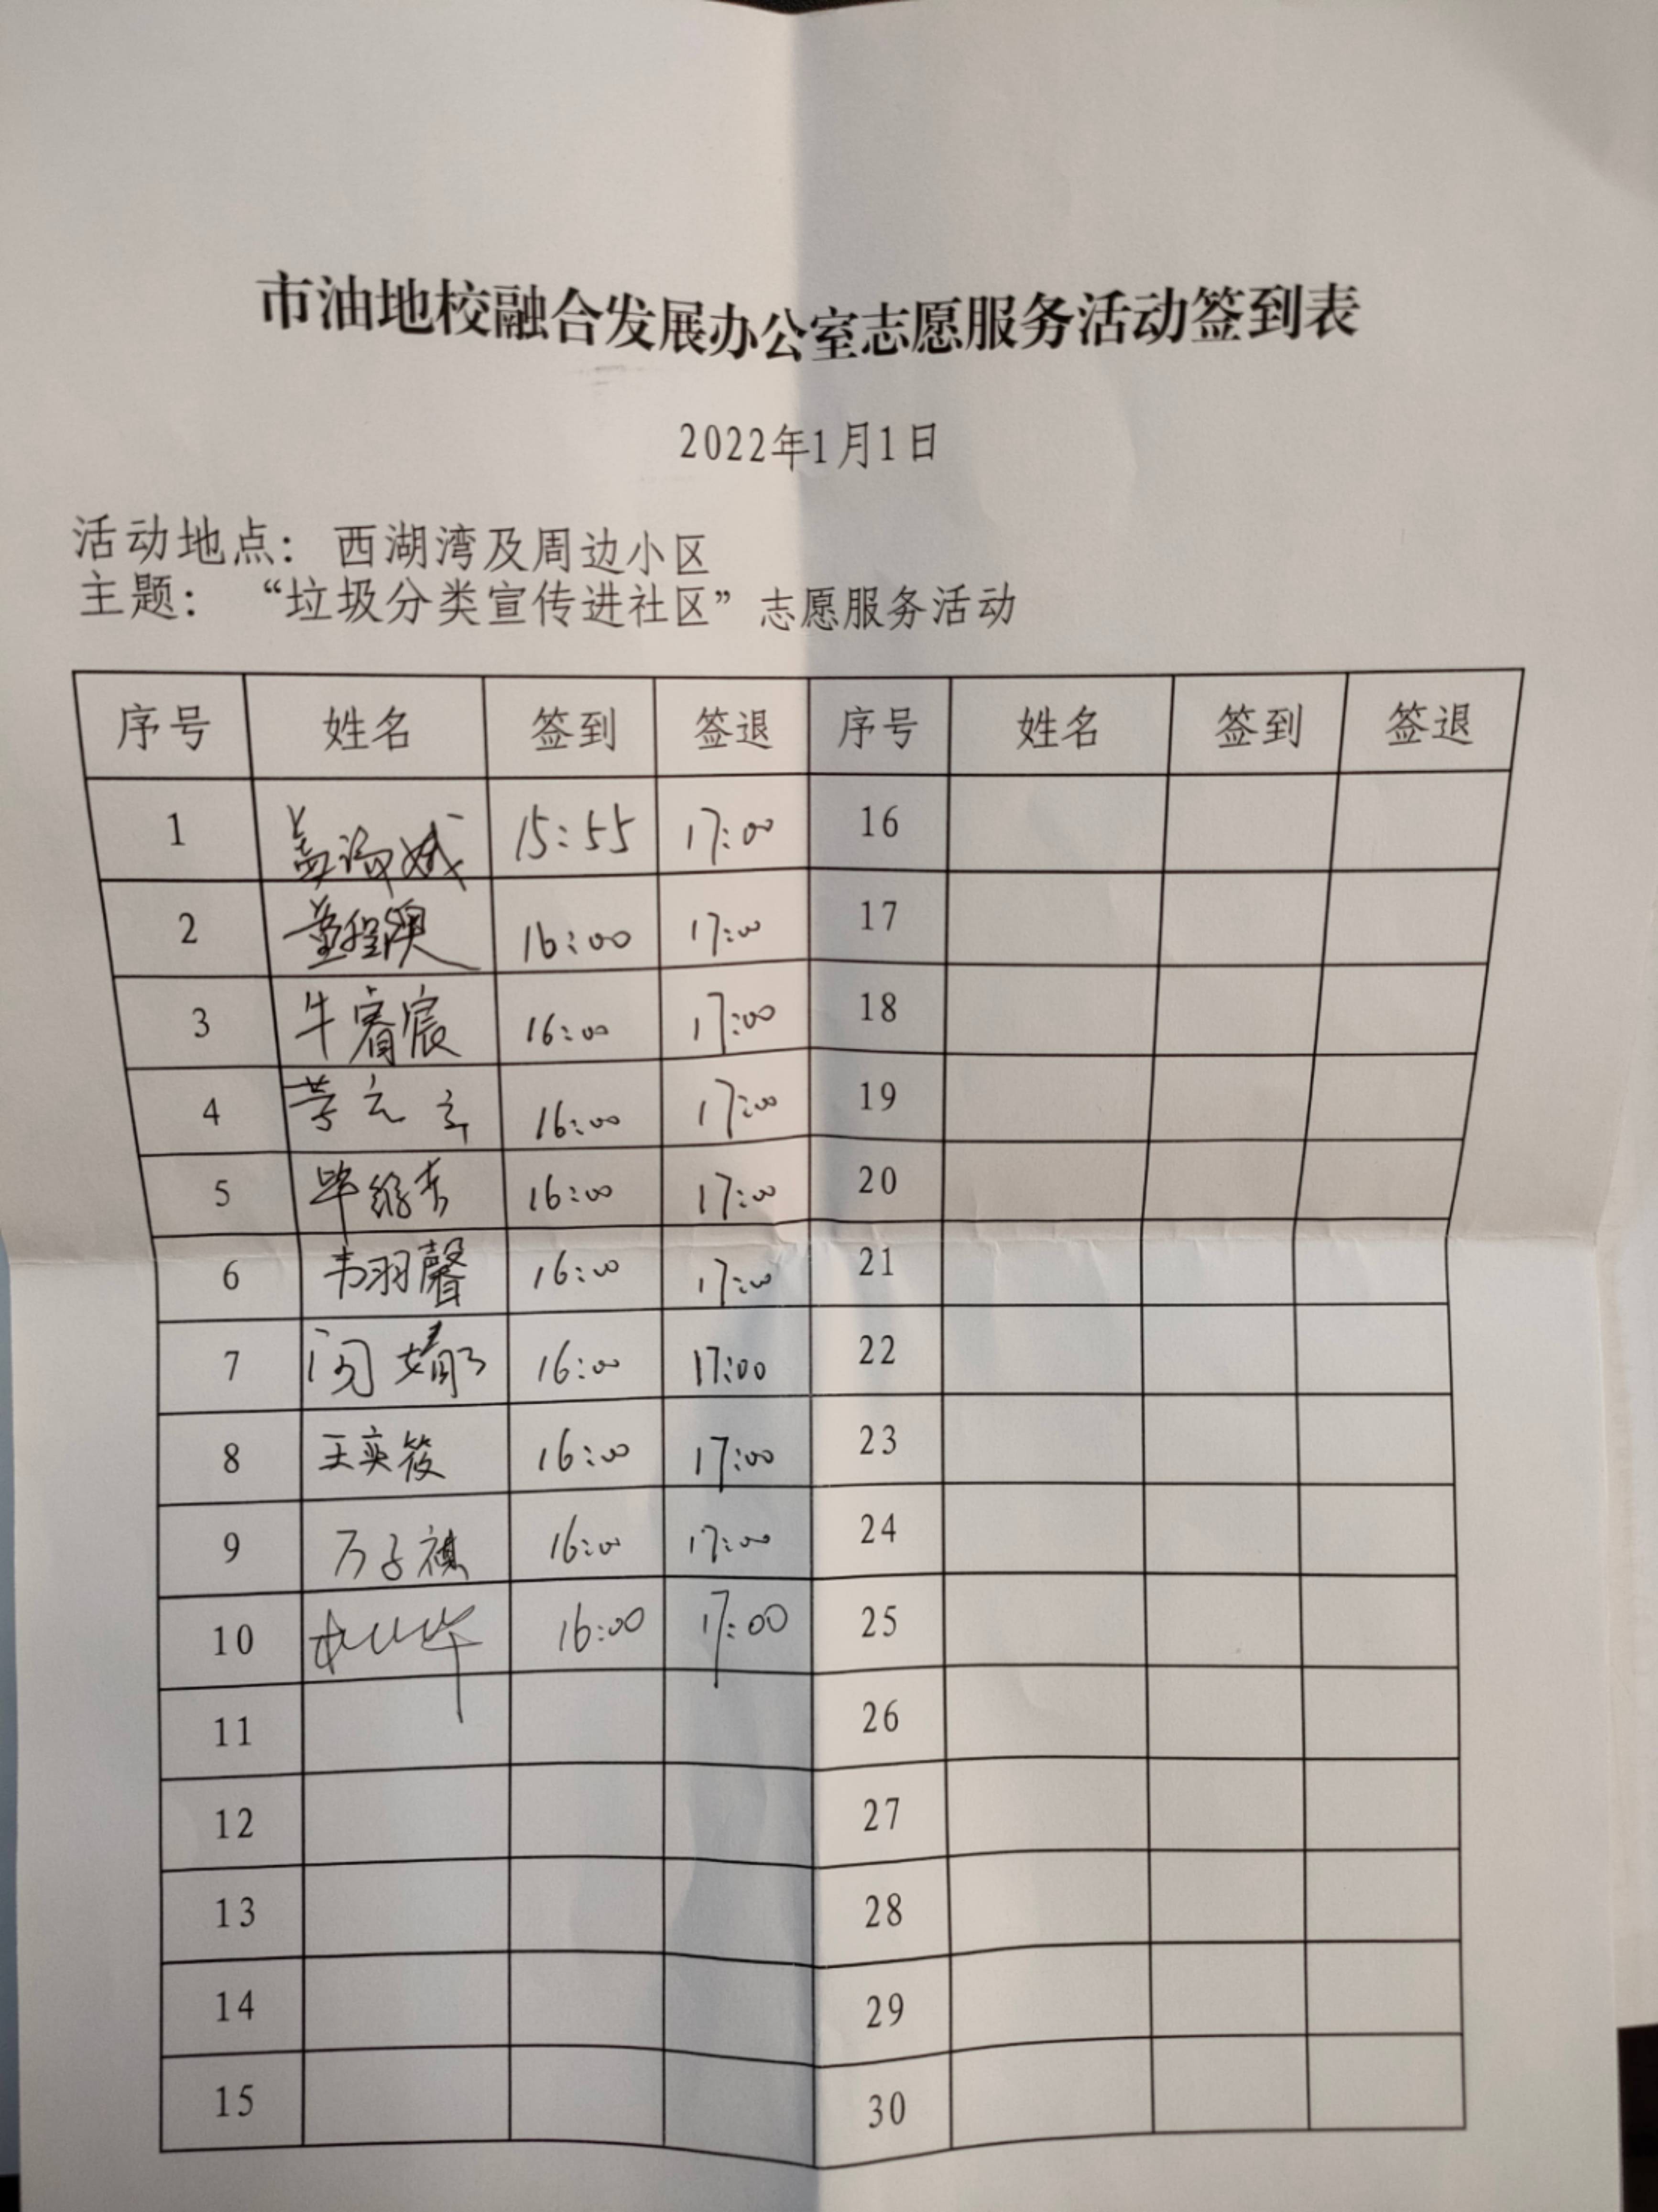 市油地校融合发展办公室志愿服务活动签到表
2022年1月1日
活动地点：西湖湾及周边小区
主题：“垃圾分类宣传进社区”志愿服务活动
序号 姓名 签到 签退 序号 姓名 签到 签退
1 15:55 17:00 16
2 董程澳 16:00 17:00 17
3 牛睿宸 16:00 17:00 18
4 16:00 17:00 19
5 16:00 17:00 20
6 韦羽馨 16:00 17:00 21
7 16:00 17:00 22
8 王奕筱 16:00 17:00 23
9 万子祺 16:00 17:00 24
10 16:00 17:00 25
11 26
12 27
13 28
14 29
15 30